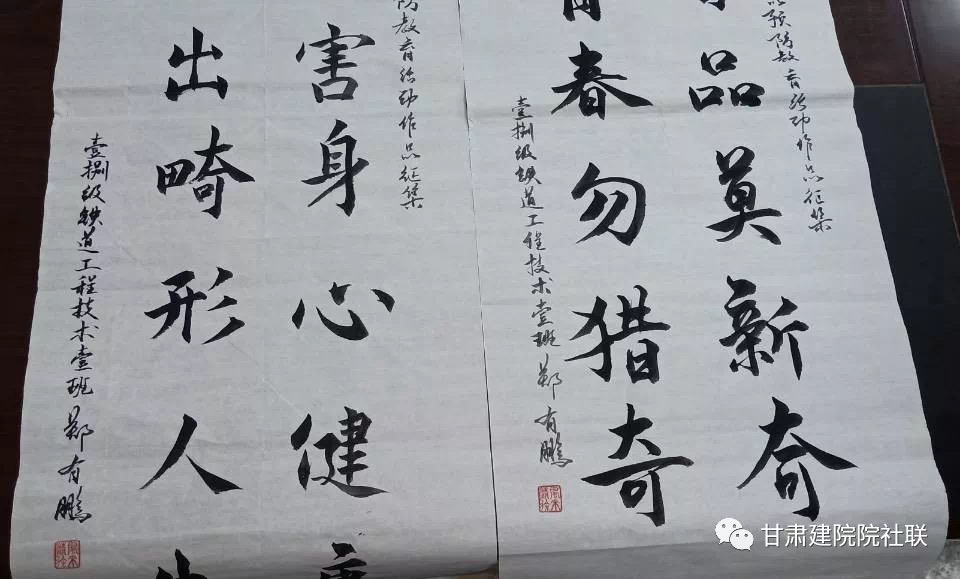 品莫新奇
预防教育活动作品征集
春勿猎奇
壹捌级铁道工程技术壹班 郑有鹏
防教育活动作品征集
害身心健
出畸形人
壹捌级铁道工程技术壹班 郑有鹏
甘肃建院院社联